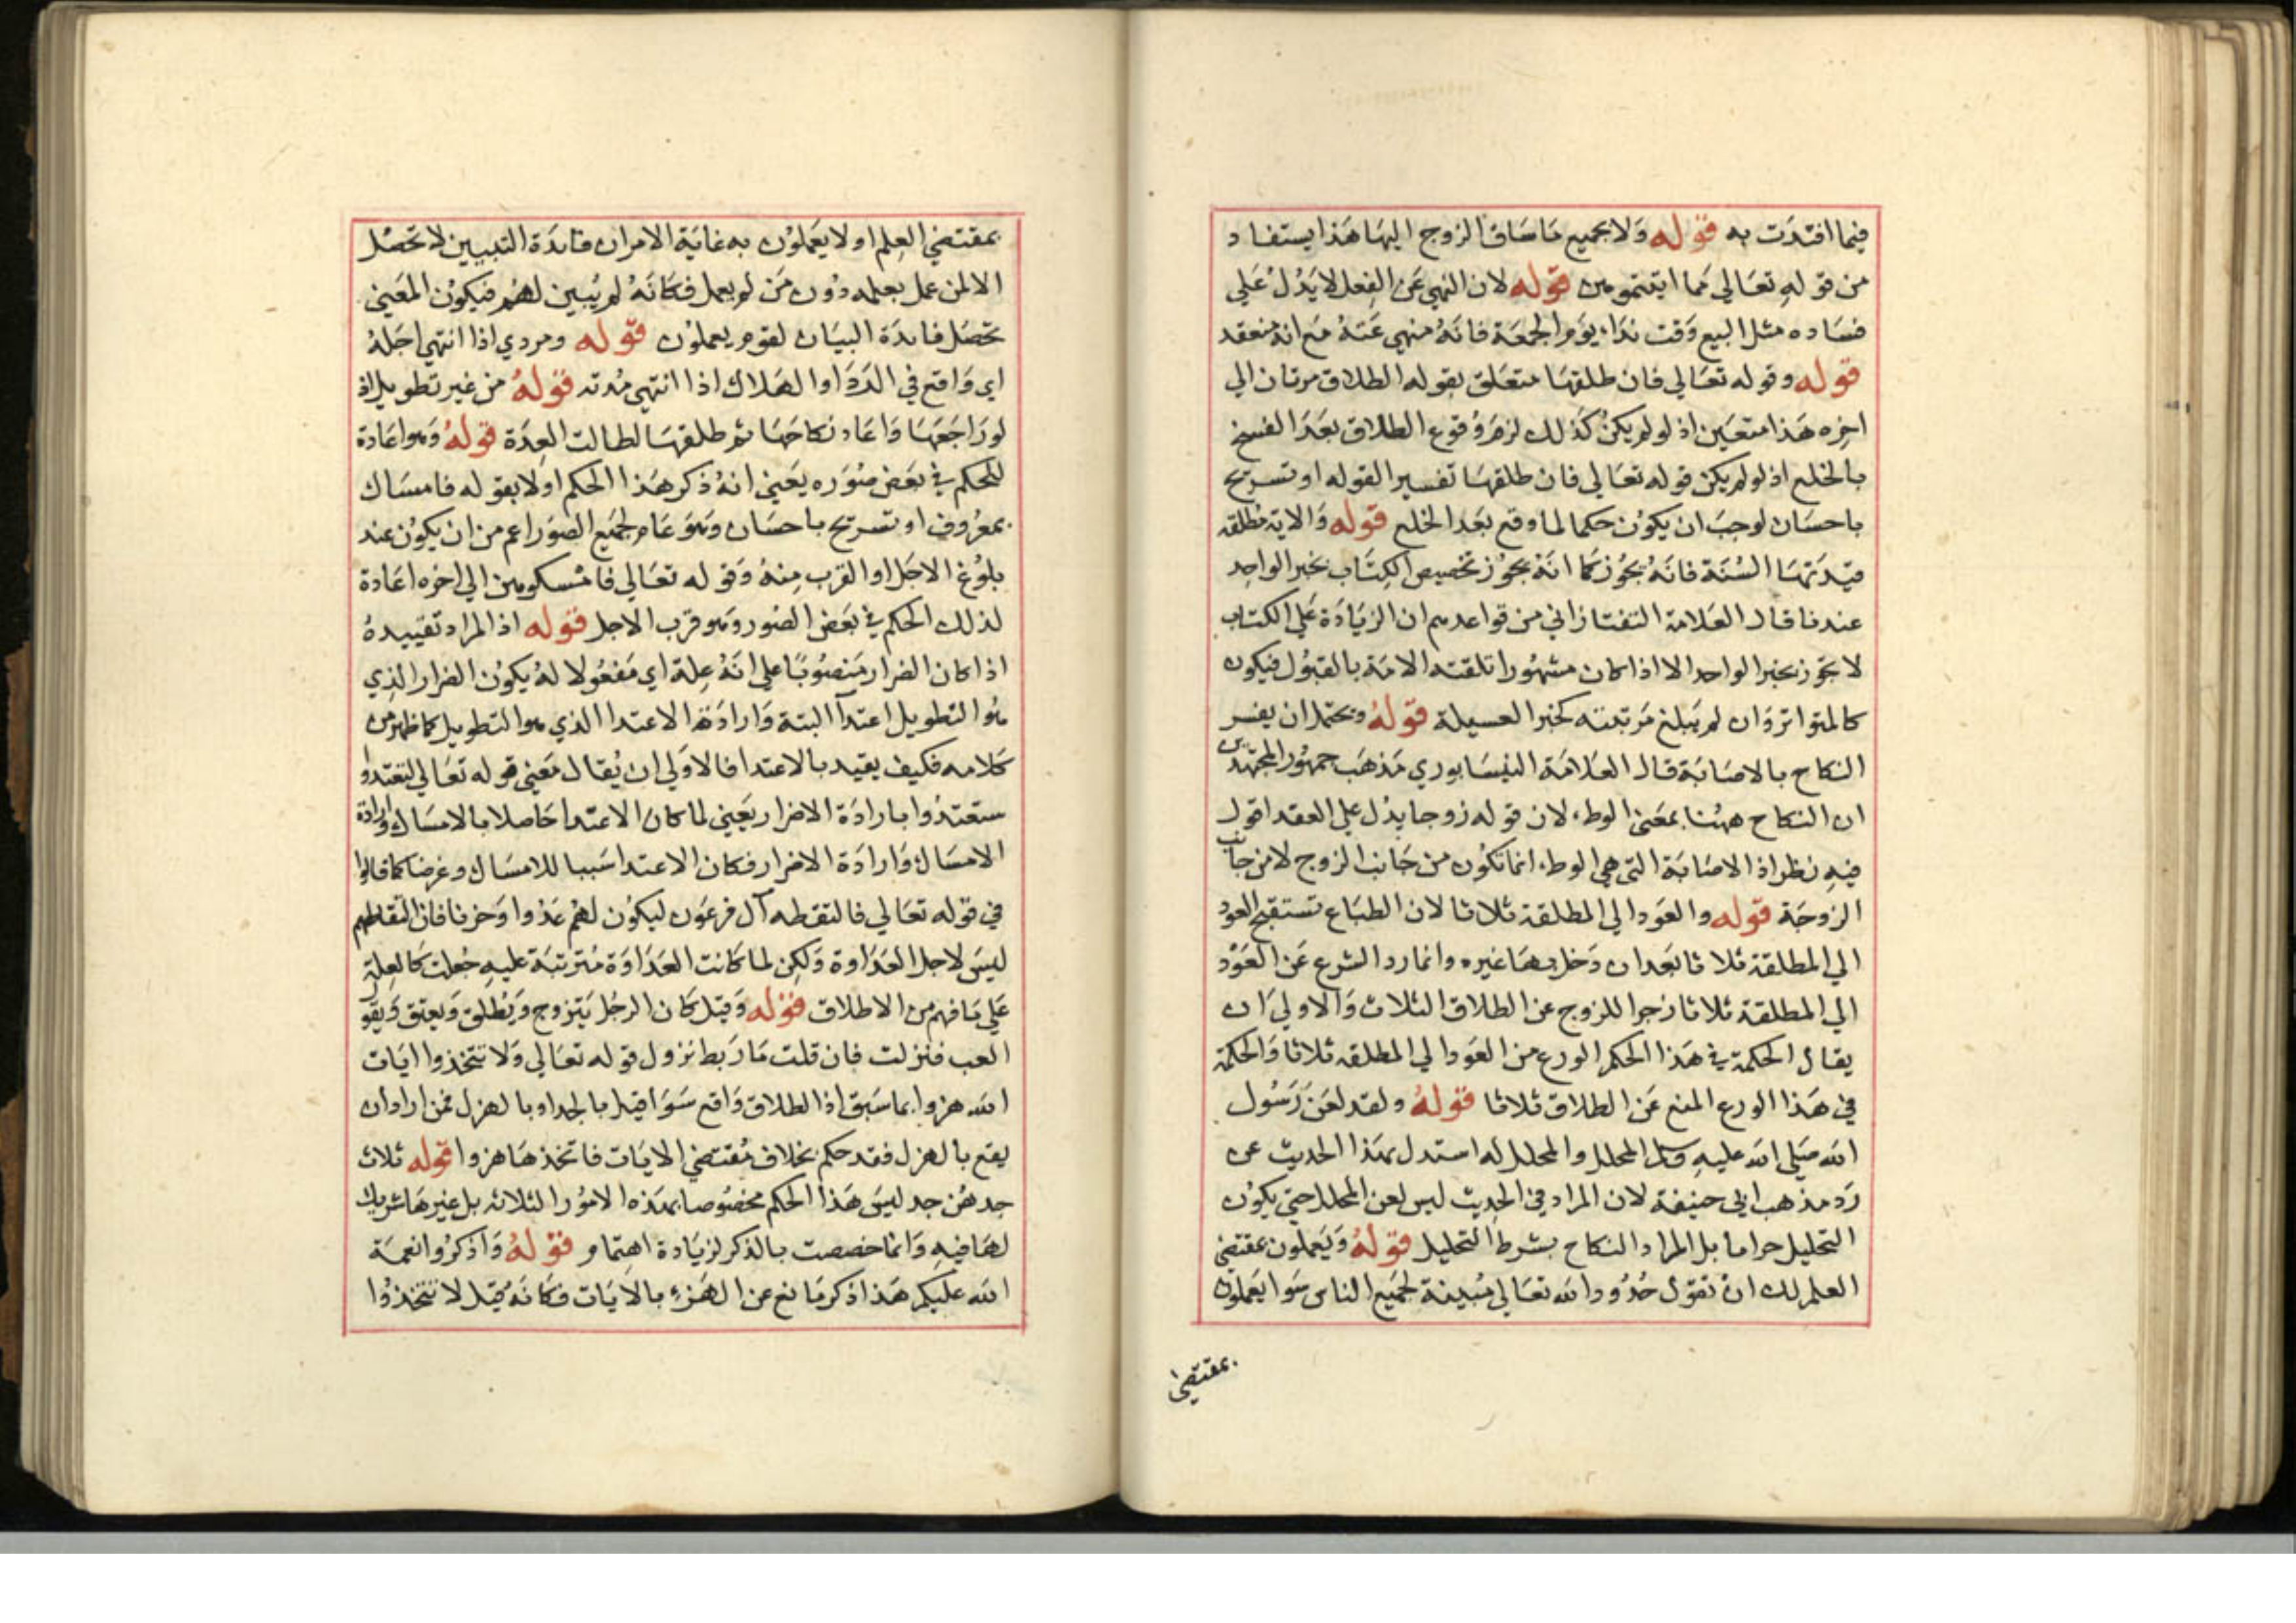 فيما افتدت به قوله ولا بجميع ما ساق الزوج اليها هذا يستفاد
من قوله تعالي مما ايتتموهن قوله لان النهي عن الفعل لا يدل علي
فساده مثل البيع وقت نداء يوم الجمعة فانه منهي عنه مع انه منعقد
قوله وقوله تعالي فان طلقها متعلق بقوله الطلاق مرتان الي
اخره هذا متعين اذ لو لم يكن كذلك لزم وقوع الطلاق بعد الفسخ
بالخلع اذ لو لم يكن قوله تعالي فان طلقها تفسيرا لقوله او تسريح
باحسان لوجب ان يكون حكما لما وقع بعد الخلع قوله والاية مطلقه
قيدتها السنة فانه يجوز كما انه يجوز تخصيص الكتاب بخبر الواحد
عندنا قال العلامة التفتازاني من قواعدهم ان الزيادة علي الكتاب
لا تجوز بخبر الواحد الا اذا كان مشهورا تلقته الامة بالقبول فيكون
كالمتواتر وان لم يبلغ مرتبته كخبر العسيلة قوله ويحتمل ان يفسر
النكاح بالاصابة قال العلامة النيسابوري مذهب جمهور المجتهدين
ان النكاح ههنا بمعني الوطء لان قوله زوجا يدل علي العقد اقول
فيه نظر اذ الاصابة التي هي الوطء انما تكون من جانب الزوج لا من جانب
الزوجة قوله والعود الي المطلقة ثلاثا لان الطباع تستقبح العود
الي المطلقة ثلاثا بعد ان دخل بها غيره وانما ردا لشرع عن العود
الي المطلقة ثلاثا زجرا للزوج عن الطلاق الثلاث والاولي ان
يقال الحكمة في هذا الحكم الورع من العود الي المطلقه ثلاثا والحكمة
في هذا الورع المنع عن الطلاق ثلاثا قوله ولقد لعن رسول
الله صلي الله عليه وسلم المحلل والمحلل له استدل بهذا الحديث عن
رد مذهب ابي حنيفة لان المراد في الحديث ليس لعن المحلل حتي يكون
التحليل حراما بل المراد النكاح بشرط التحليل قوله ويعملون بمقتضي
العلم لك ان تقول حدود الله تعالي مبينة لجميع الناس سوا يعملون
بمقتضي
بمقتضي العلم او لا يعملون به غاية الامر ان فائدة التبيين لا تحصل
الا لمن عمل بعلمه دون من لم يعمل فكانه لم يبين لهم فيكون المعني
تحصل فائدة البيان لقوم يعملون قوله ومردي اذا انتهي اجله
اي واقع في الردا او الهلاك اذا انتهي مدته قوله من غير تطويل اذ
لو راجعها واعاد نكاحها ثم طلقها لطالت العدة قوله وهو اعادة
للحكم في بعض صوره يعني انه ذكر هذا الحكم اولا بقوله فامساك
بمعروف او تسريح باحسان وهو عام لجميع الصور اعم من ان يكون عند
بلوغ الاجل او القرب منه وقوله تعالي فامسكوهن الي اخره اعادة
لذلك الحكم في بعض الصور وهو قرب الاجل قوله اذ المراد تقييده
اذا كان الضرار منصوبا علي انه علة اي مفعولا له يكون الضرار الذي
هو التطويل اعتدآ البتة وارادة الاعتدا الذي هو التطويل كما ظهر من
كلامه فكيف يقيد بالاعتدا فالاولي ان يقال معني قوله تعالي لتعتدوا
ستعتدوا بارادة الاضرار يعني لما كان الاعتدا حاصلا بالامساك وارادة
الامساك وارادة الاضرار فكان الاعتدا سببا للامساك وغرضا كما قالوا
في قوله تعالي فالتقطه آل فرعون ليكون لهم عدوا وحزنا فان التقاطهم
ليس لاجل العداوة ولكن لما كانت العداوة مترتبة عليه جعلت كالعلة
علي ما فهم من الاطلاق قوله وقيل كان الرجل يتزوج ويطلق ويعتق ويقول
العب فنزلت فان قلت ما ربط نزول قوله تعالي ولا تتخذوا ايات
الله هزوا بما سبق اذ الطلاق واقع سوا قيل بالجد او بالهزل فمن اراد ان
يقع بالهزل فقد حكم بخلاف مقتضي الايات فاتخذها هزوا قوله ثلاث
جدهن جد ليس هذا الحكم مخصوصا بهذه الامور الثلاثه بل غيرها شريك
لها فيه وانما خصصت بالذكر لزيادة اهتمام قوله واذكروا نعمة
الله عليكم هذا ذكر مانع عن الهزء بالايات فكانه قيل لا تتخذوا